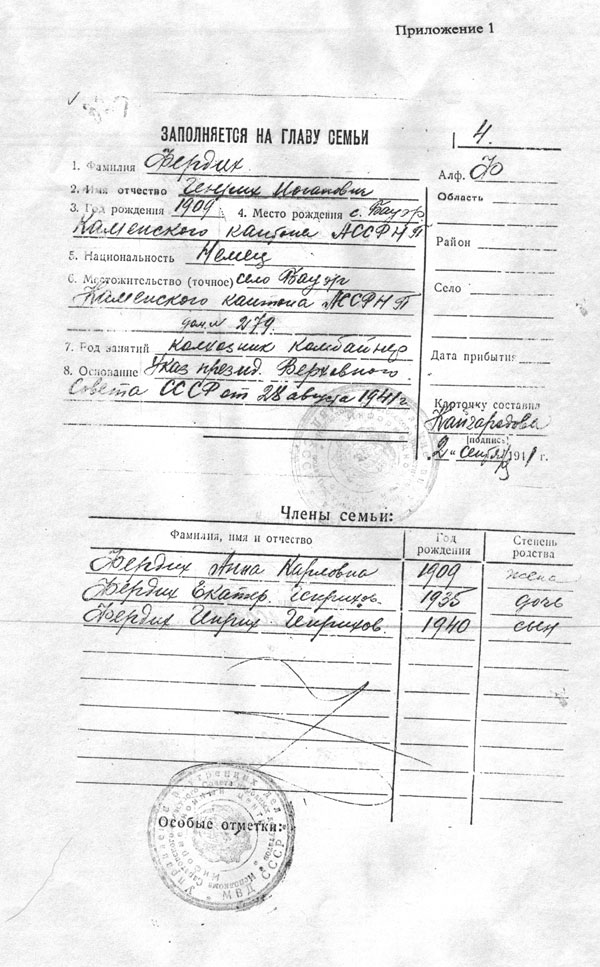 Приложение 1
ЗАПОЛНЯЕТСЯ НА ГЛАВУ СЕМЬИ
4.
1. Фамилия Фердих
Алф. Ф
2. Имя отчество Генрих Иоганович
Область
3. Год рождения 1909 4. Место рождения с. Бауэр
Каменского кантона АССРНП
Район
5. Национальность Немец
6. Местожительство (точное) село Бауэр
Село
Каменского кантона АССРНП
дом. № 279
7. Род занятий колхозник комбайнер
Дата прибытия
8. Основание Указ презид. Верховного
Совета СССР от 28 августа 1941 г
Карточку составил
[подпись]
2" сентября 1941 г.
Члены семьи:
Фамилия, имя и отчество
Год рождения
Степень родства
Фердих Анна Карловна 1909 жена
Фердих Екатер. 1935 дочь
Фердих 1940 сын
Особые отметки:
МВД СССР